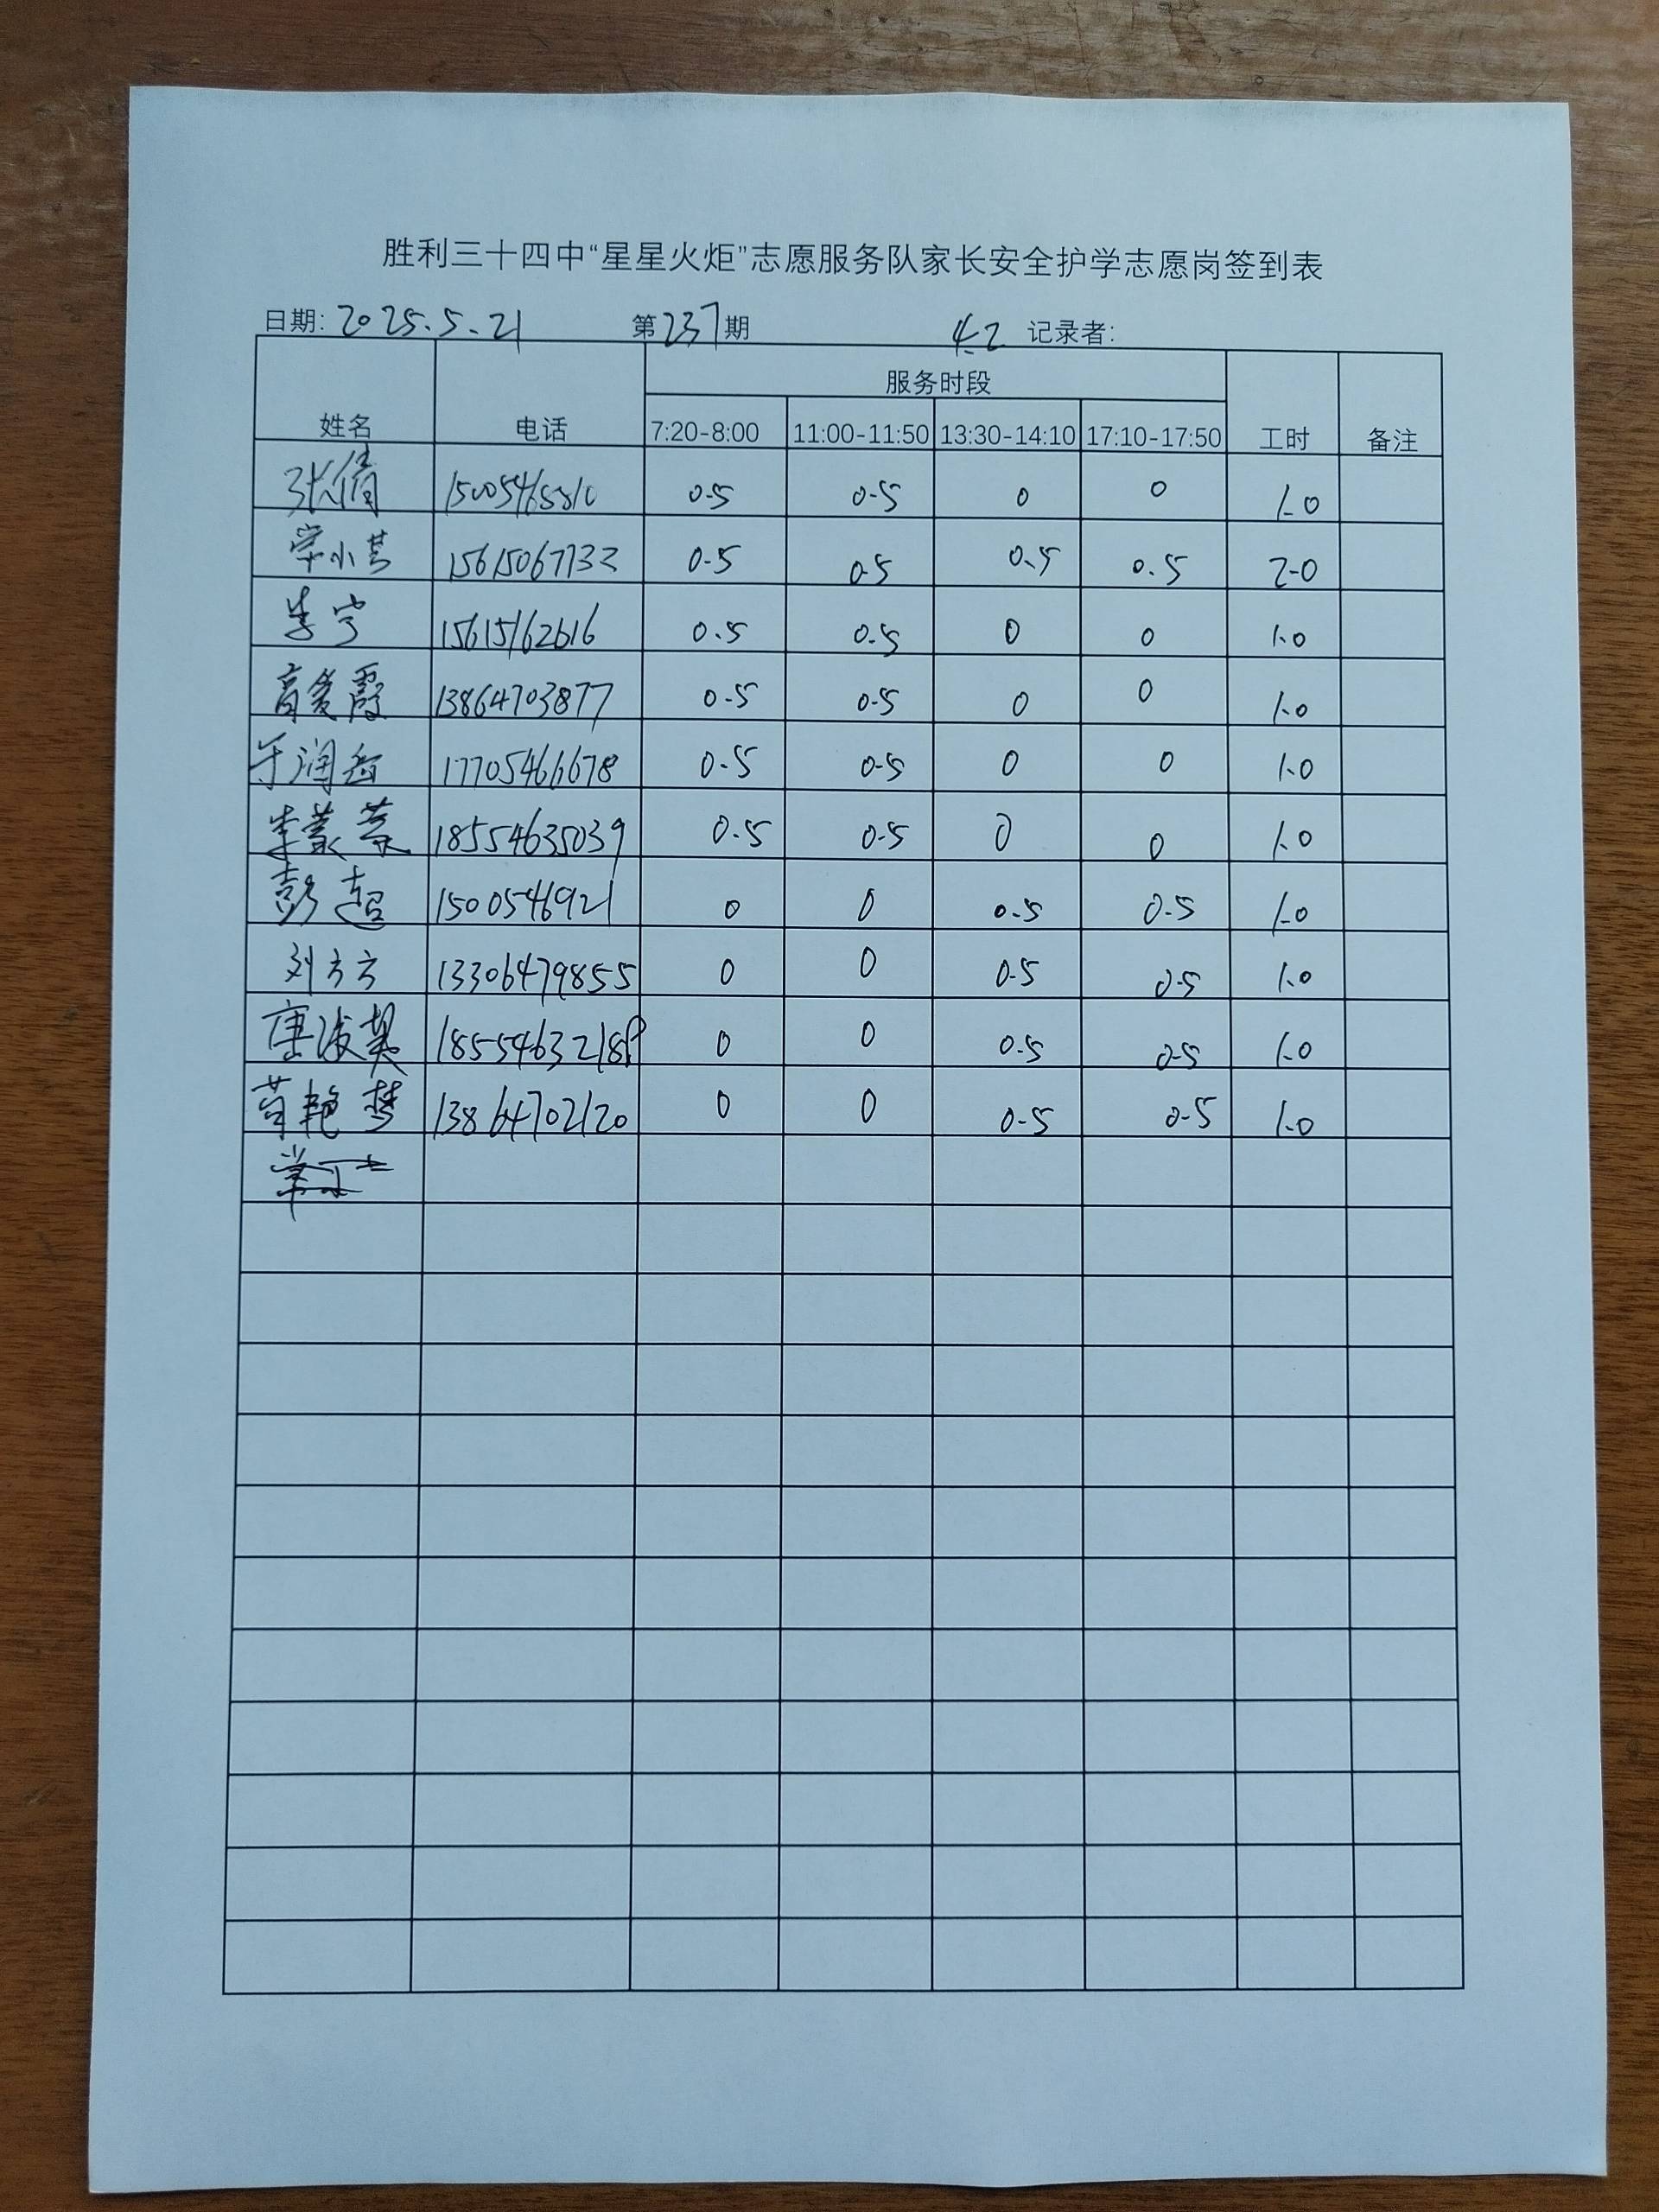 胜利三十四中“星星火炬”志愿服务队家长安全护学志愿岗签到表
日期: 2025.5.21 第237期 4.2 记录者:
服务时段
姓名 电话 7:20-8:00 11:00-11:50 13:30-14:10 17:10-17:50 工时 备注
张倩 15005465810 0.5 0.5 0 0 1.0
小 15615067733 0.5 0.5 0.5 0.5 2.0
李宁 15615162616 0.5 0.5 0 0 1.0
高爱霞 13864703877 0.5 0.5 0 0 1.0
于润 17705466678 0.5 0.5 0 0 1.0
李蒙蒙 18554635039 0.5 0.5 0 0 1.0
彭超 1500546921 0 0 0.5 0.5 1.0
刘方方 13306479855 0 0 0.5 0.5 1.0
唐 18554632189 0 0 0.5 0.5 1.0
艳梦 13864702120 0 0 0.5 0.5 1.0